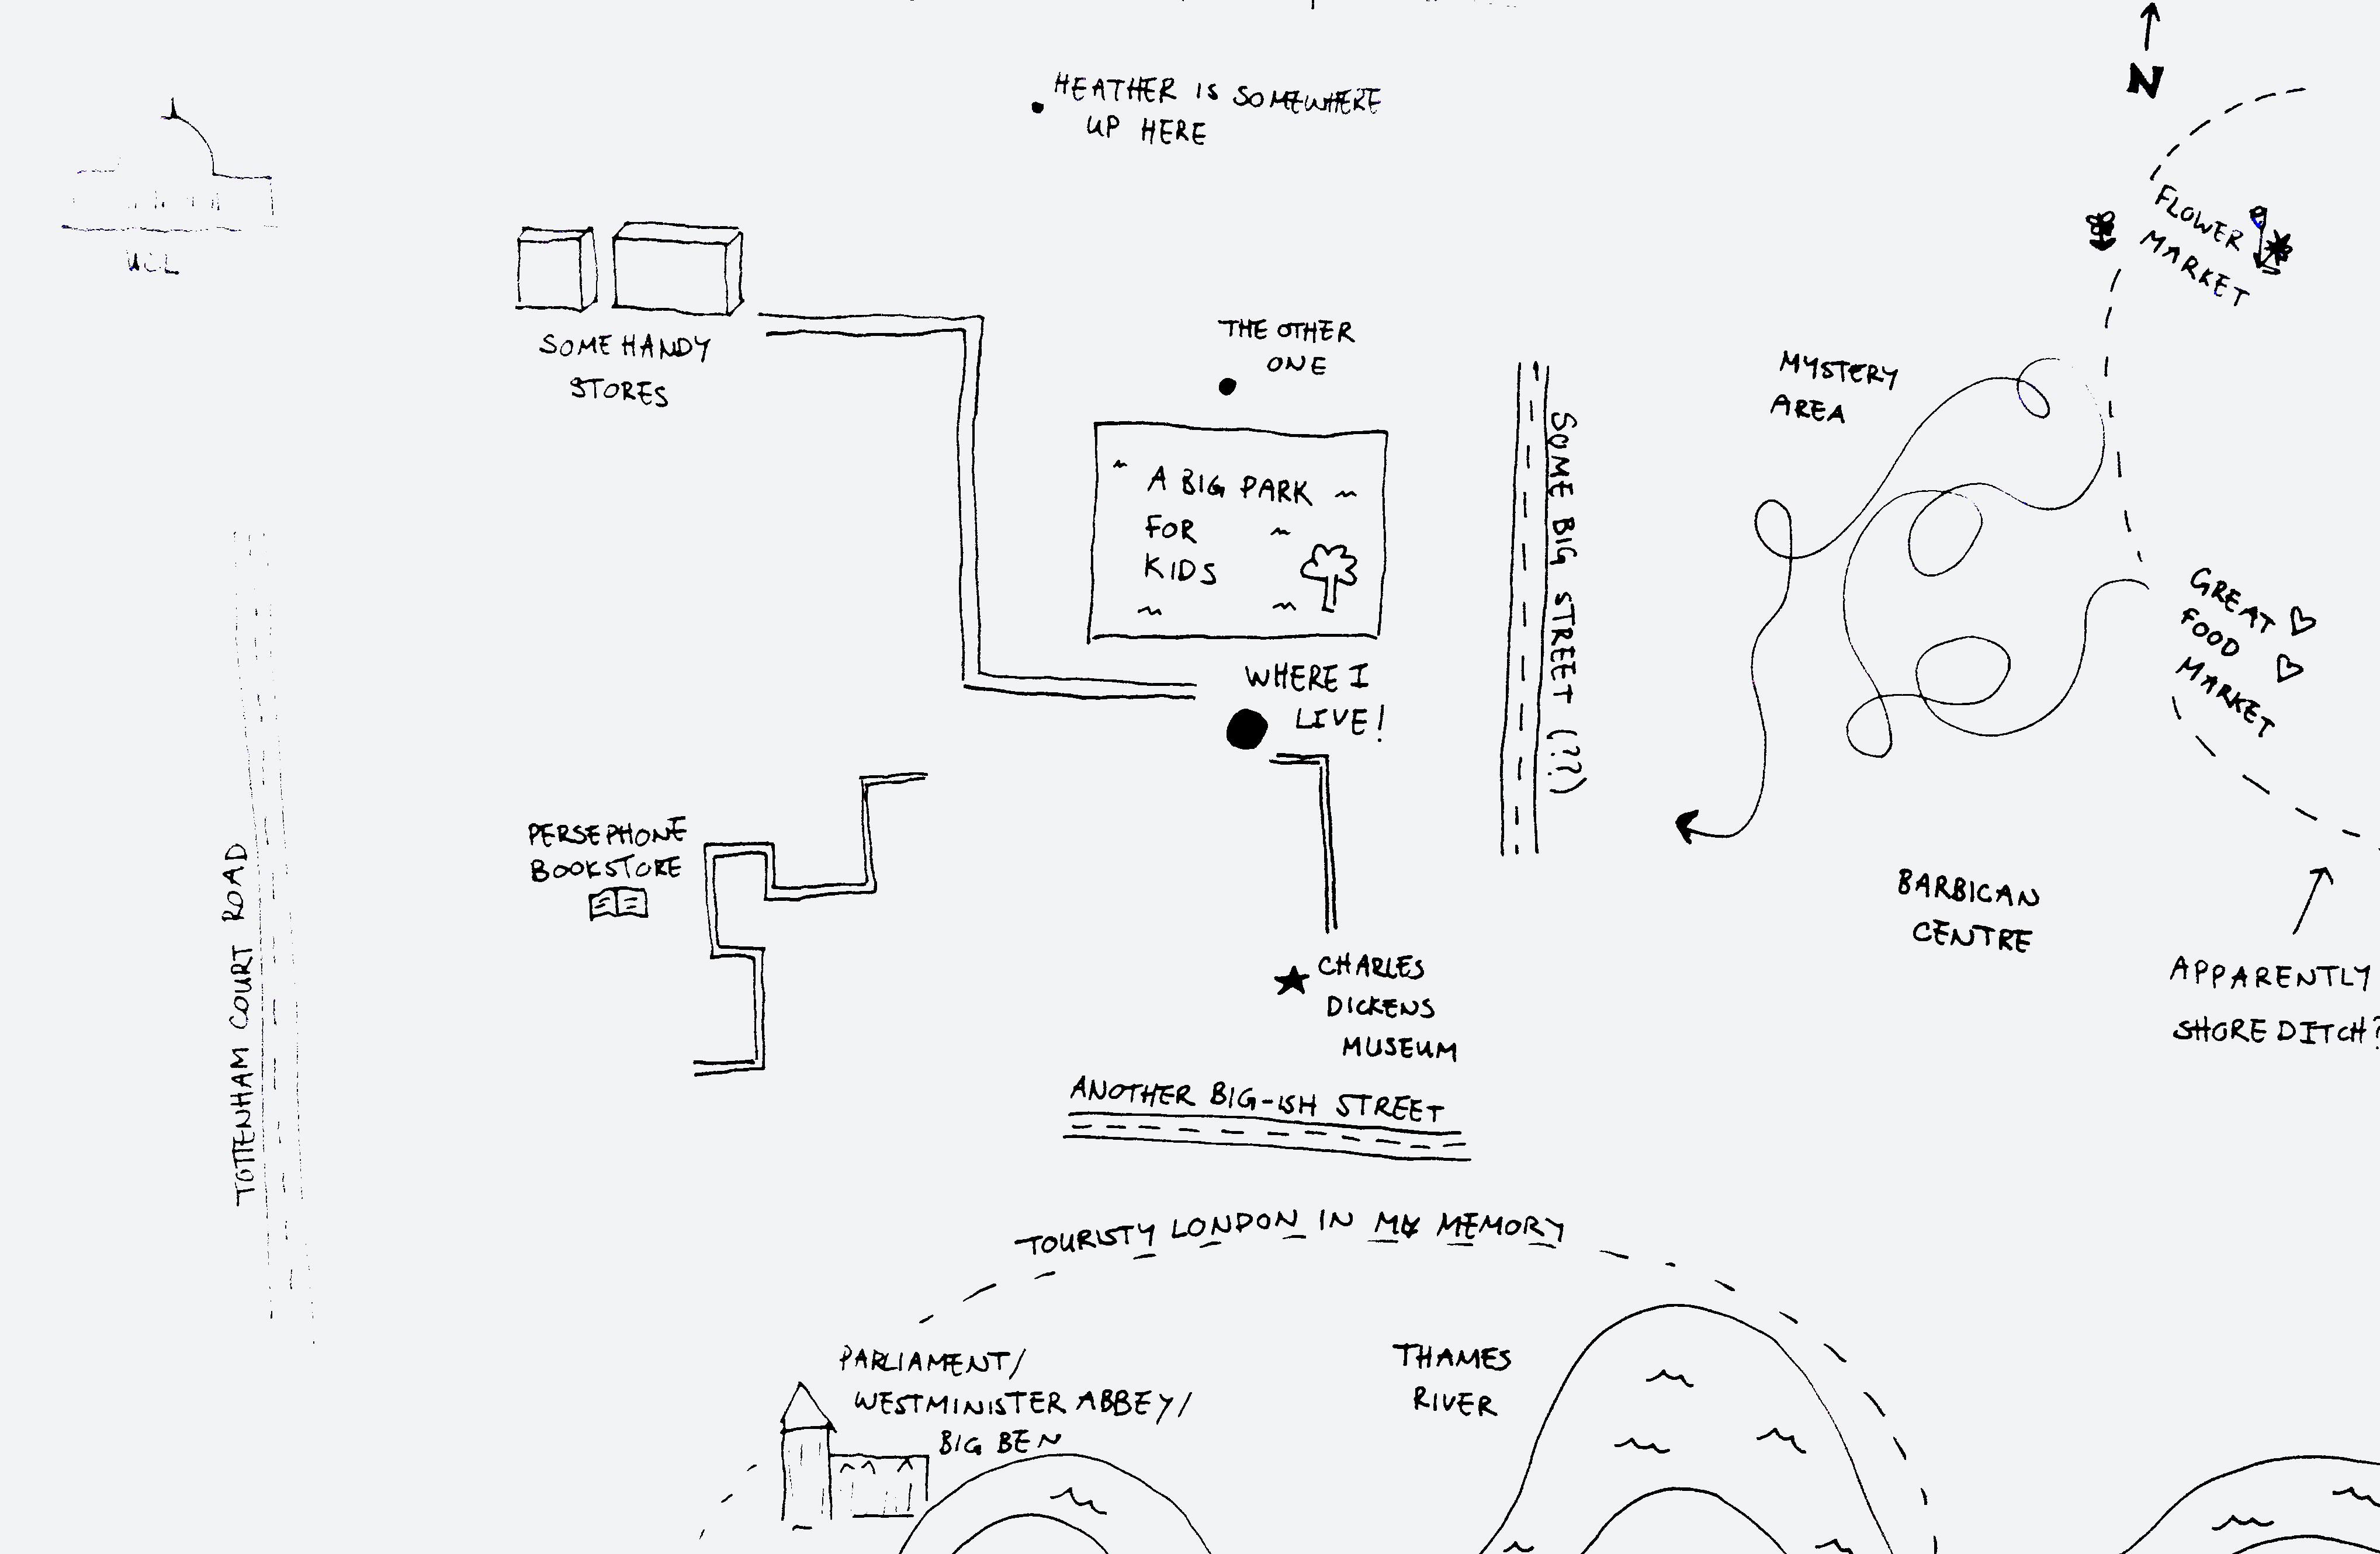 N
HEATHER IS SOMEWHERE
UP HERE
UCL
FLOWER
MARKET
SOME HANDY
STORES
THE OTHER
ONE
MYSTERY
AREA
A BIG PARK
FOR
KIDS
SOME BIG STREET (??)
GREAT
FOOD
MARKET
WHERE I
LIVE!
PERSEPHONE
BOOKSTORE
TOTTENHAM COURT ROAD
BARBICAN
CENTRE
CHARLES
DICKENS
MUSEUM
APPARENTLY
SHOREDITCH?
ANOTHER BIG-ISH STREET
TOURISTY LONDON IN MY MEMORY
PARLIAMENT/
WESTMINISTER ABBEY/
BIG BEN
THAMES
RIVER